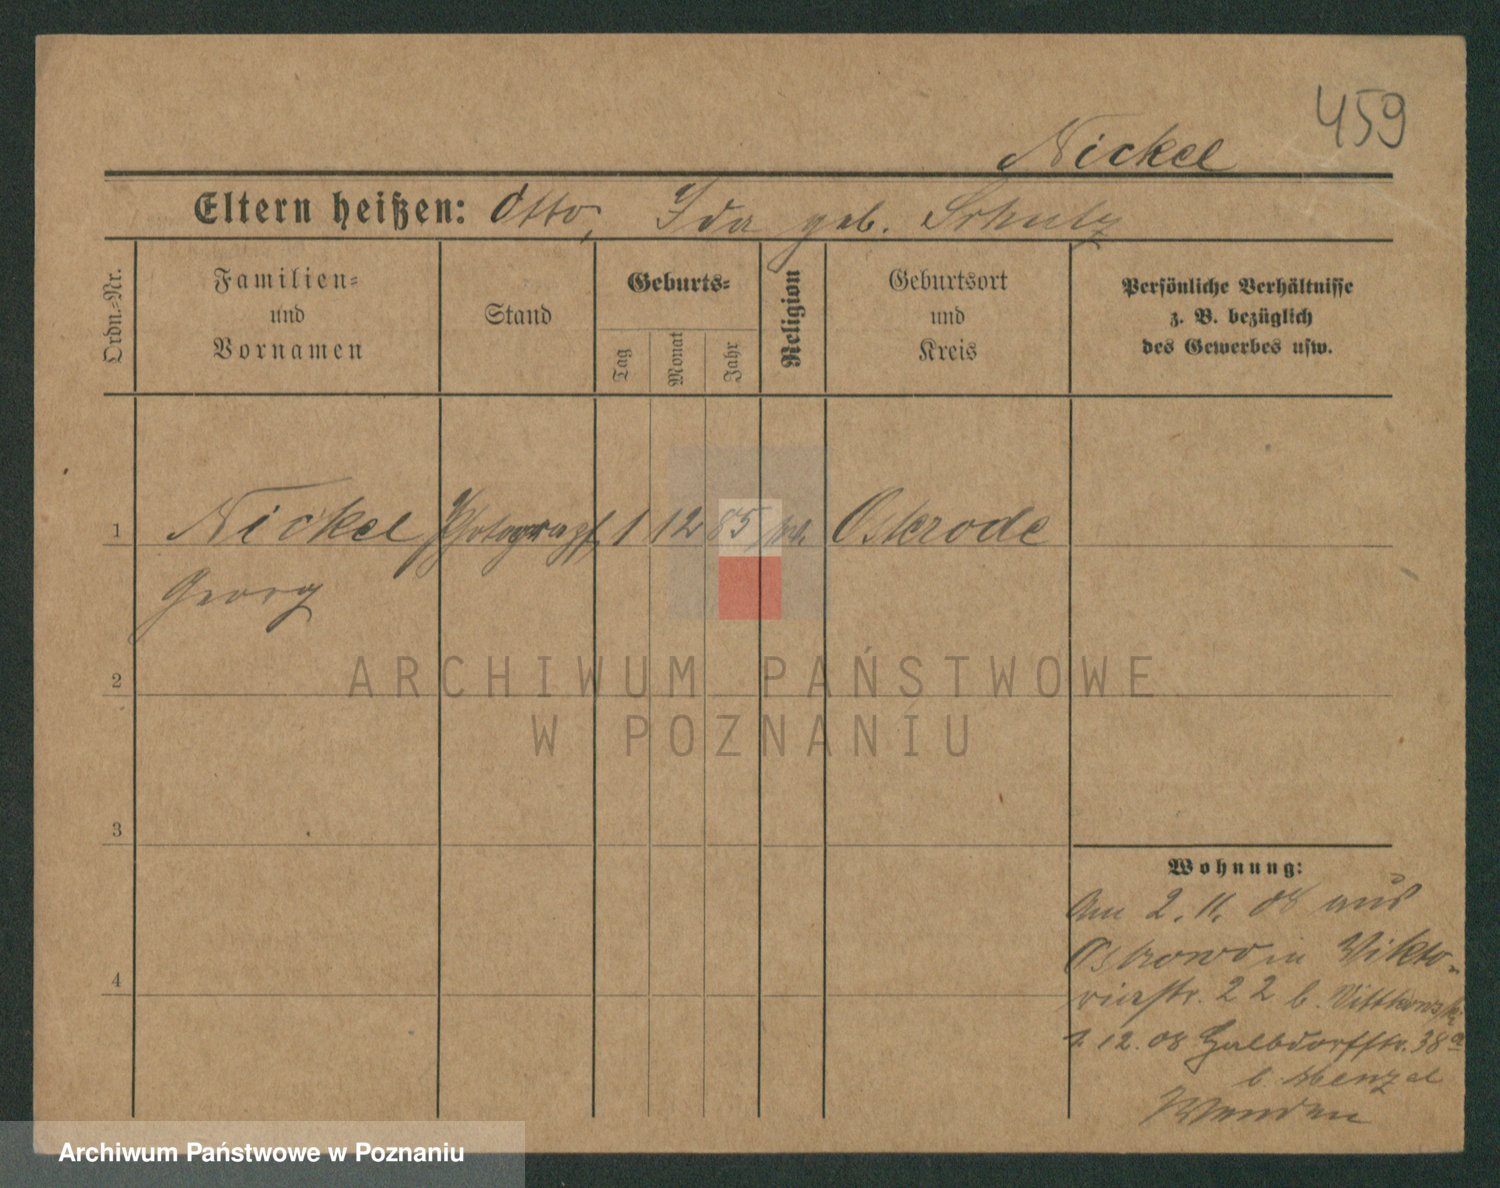 459
Nickel
Eltern heißen: Otto, Ida geb. Schulz
Ordn.-Nr.
Familien-
und
Vornamen
Stand
Geburts-
Tag
Monat
Jahr
Religion
Geburtsort
und
Kreis
Persönliche Verhältnisse
z. B. bezüglich
des Gewerbes usw.
1 Nickel Photograph 1 12 85 Osterode
Georg
2
3
4
Wohnung:
Am 2. 11. 08 aus
Ostrowo in Vikto-
riastr. 22 b. Wittkowski
1. 12. 08 Halbdorfstr. 38a
b. Menzel
Wenden
ARCHIWUM PAŃSTWOWE
W POZNANIU
Archiwum Państwowe w Poznaniu